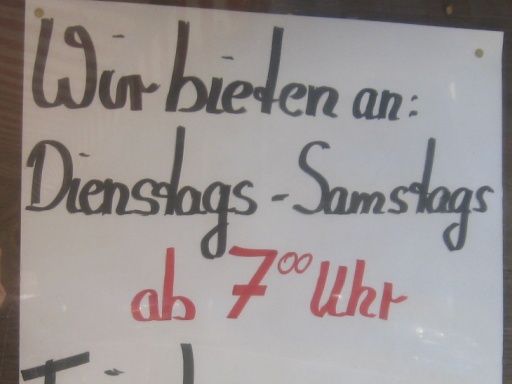 Wir bieten an:
Dienstags - Samstags
ab 7⁰⁰ Uhr